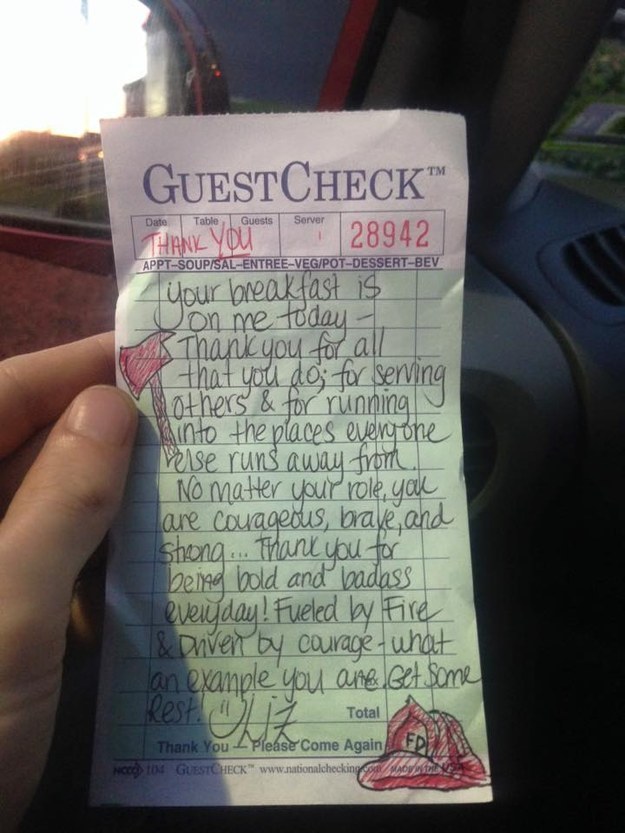 GUESTCHECK™
Date Table Guests Server
THANK YOU 28942
APPT–SOUP/SAL–ENTREE–VEG/POT–DESSERT–BEV
your breakfast is
on me today –
Thank you for all
that you do; for serving
others & for running
into the places everyone
else runs away from.
No matter your role, you
are courageous, brave, and
strong... Thank you for
being bold and badass
everyday! Fueled by Fire
& Driven by courage - what
an example you are. Get Some
Rest! Liz
Total
Thank You – Please Come Again
FD
104 GUESTCHECK™ www.nationalchecking.com MADE IN THE USA